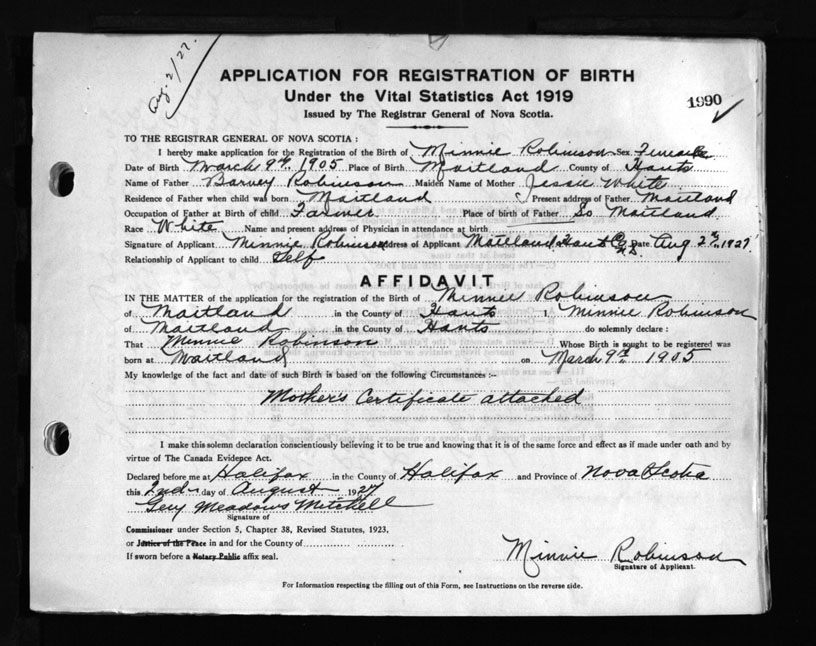 Aug. 2/27.
APPLICATION FOR REGISTRATION OF BIRTH
Under the Vital Statistics Act 1919
1990
Issued by The Registrar General of Nova Scotia.
TO THE REGISTRAR GENERAL OF NOVA SCOTIA :
I hereby make application for the Registration of the Birth of Minnie Robinson Sex Female
Date of Birth March 9th, 1905 Place of Birth Maitland County of Hants
Name of Father Barney Robinson Maiden Name of Mother Jessie White
Residence of Father when child was born Maitland Present address of Father Maitland
Occupation of Father at Birth of child Farmer Place of birth of Father So. Maitland
Race White Name and present address of Physician in attendance at birth
Signature of Applicant Minnie Robinson Address of Applicant Maitland Hants Co. N.S. Date Aug 2nd, 1927
Relationship of Applicant to child Self
AFFIDAVIT
IN THE MATTER of the application for the registration of the Birth of Minnie Robinson
of Maitland in the County of Hants I, Minnie Robinson
of Maitland in the County of Hants do solemnly declare :
That Minnie Robinson Whose Birth is sought to be registered was
born at Maitland on March 9th 1905
My knowledge of the fact and date of such Birth is based on the following Circumstances :-
Mother's Certificate attached
I make this solemn declaration conscientiously believing it to be true and knowing that it is of the same force and effect as if made under oath and by
virtue of The Canada Evidence Act.
Declared before me at Halifax in the County of Halifax and Province of Nova Scotia
this 2nd day of August 1927
Meadows Mitchell
Signature of
Commissioner under Section 5, Chapter 38, Revised Statutes, 1923,
or Justice of the Peace in and for the County of
If sworn before a Notary Public affix seal.
Minnie Robinson
Signature of Applicant.
For Information respecting the filling out of this Form, see Instructions on the reverse side.